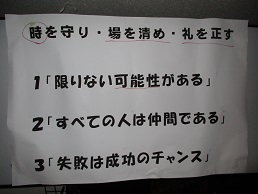 時を守り・場を清め・礼を正す
1「限りない可能性がある」
2「すべての人は仲間である」
3「失敗は成功のチャンス」